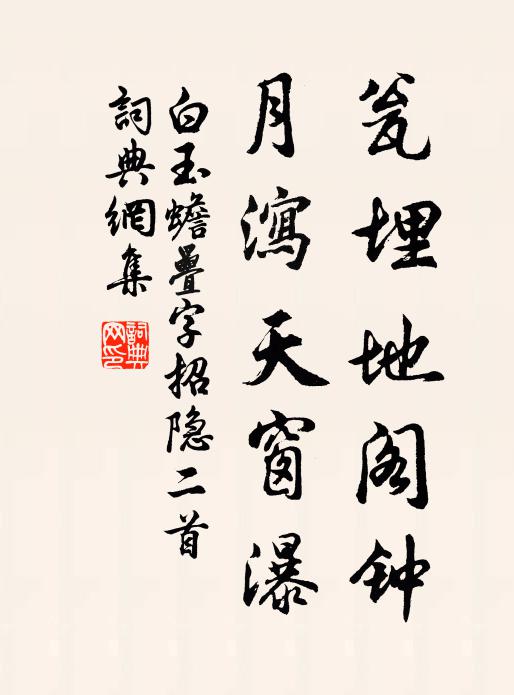 瓮埋地阁钟
月瀉天窗瀑
白玉蟾疊字招隐二首
詞典網集
詞典网印